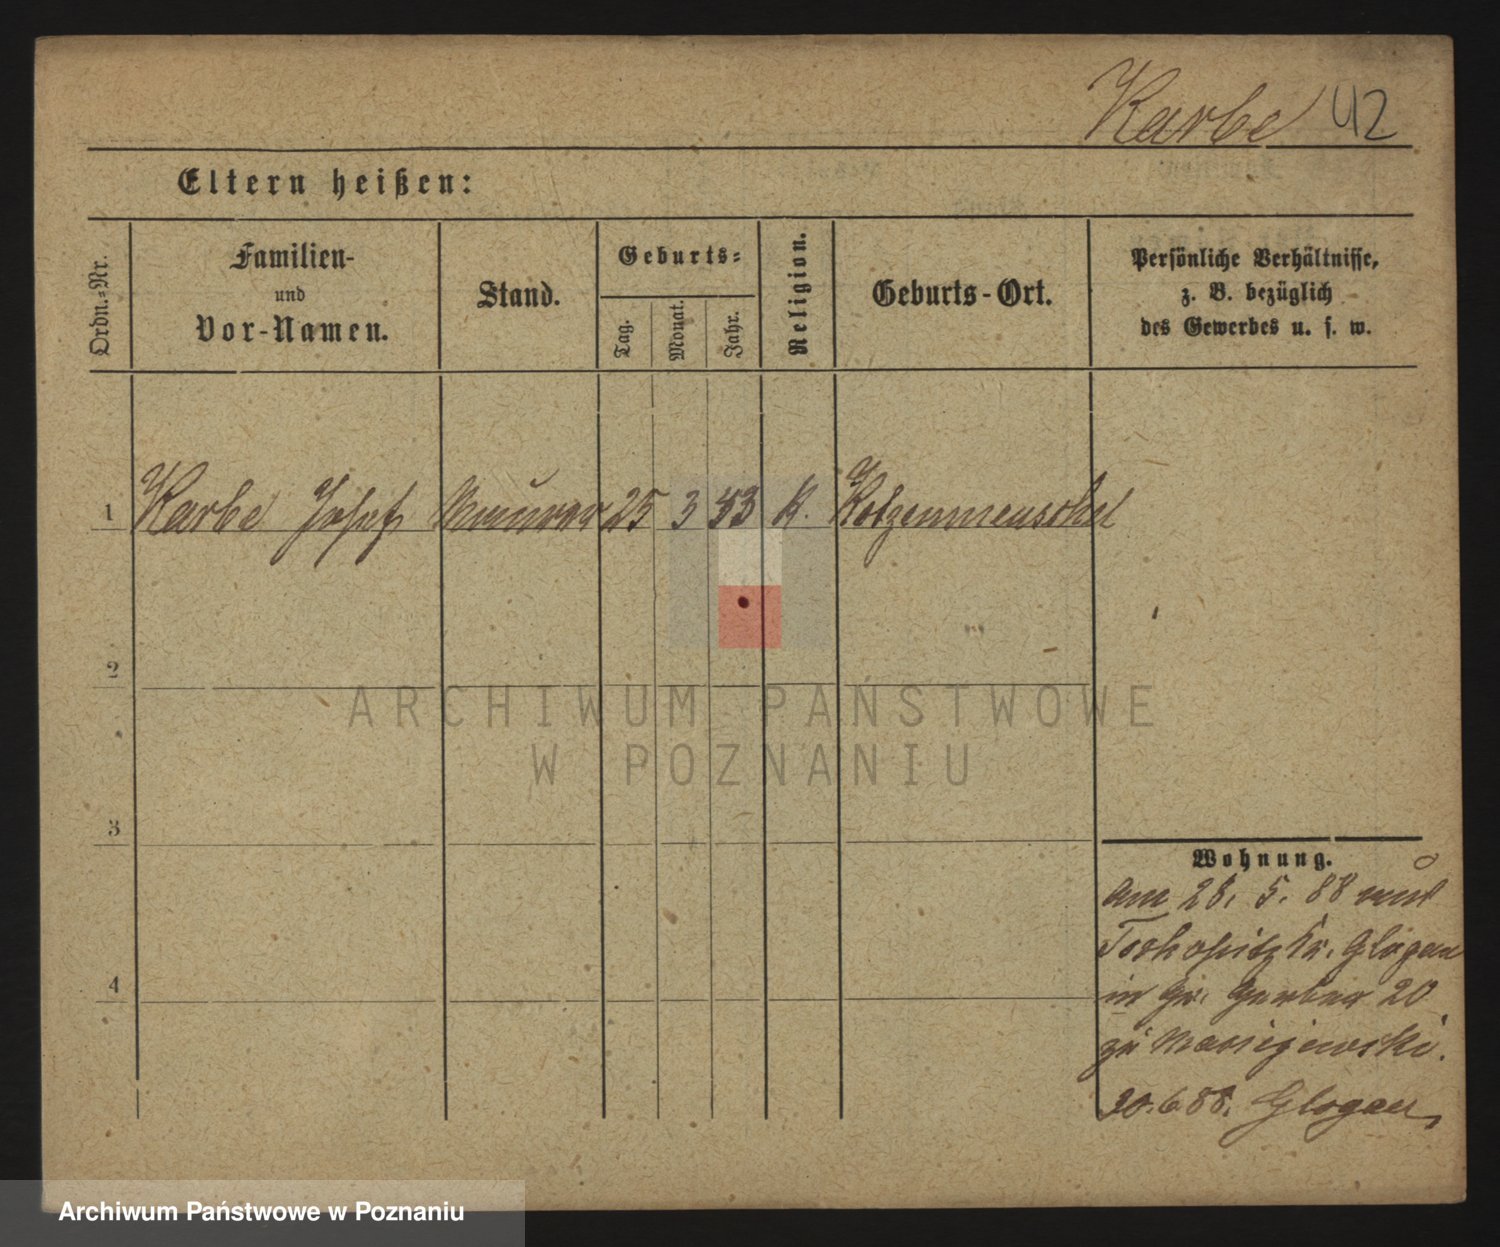 Karbe 42
Eltern heißen:
Ordn.=Nr.
Familien-
und
Vor-Namen.
Stand.
Geburts=
Tag.
Monat.
Jahr.
Religion.
Geburts-Ort.
Persönliche Verhältnisse,
z. B. bezüglich
des Gewerbes u. s. w.
1 Karbe Josef Maurer 25 3 53 K.
2
ARCHIWUM PAŃSTWOWE
W POZNANIU
3
4
Wohnung.
am 28. 5. 88
Kr. Glogau
in Gr. Gerber 20
zu
30.6.88. Glogau
Archiwum Państwowe w Poznaniu